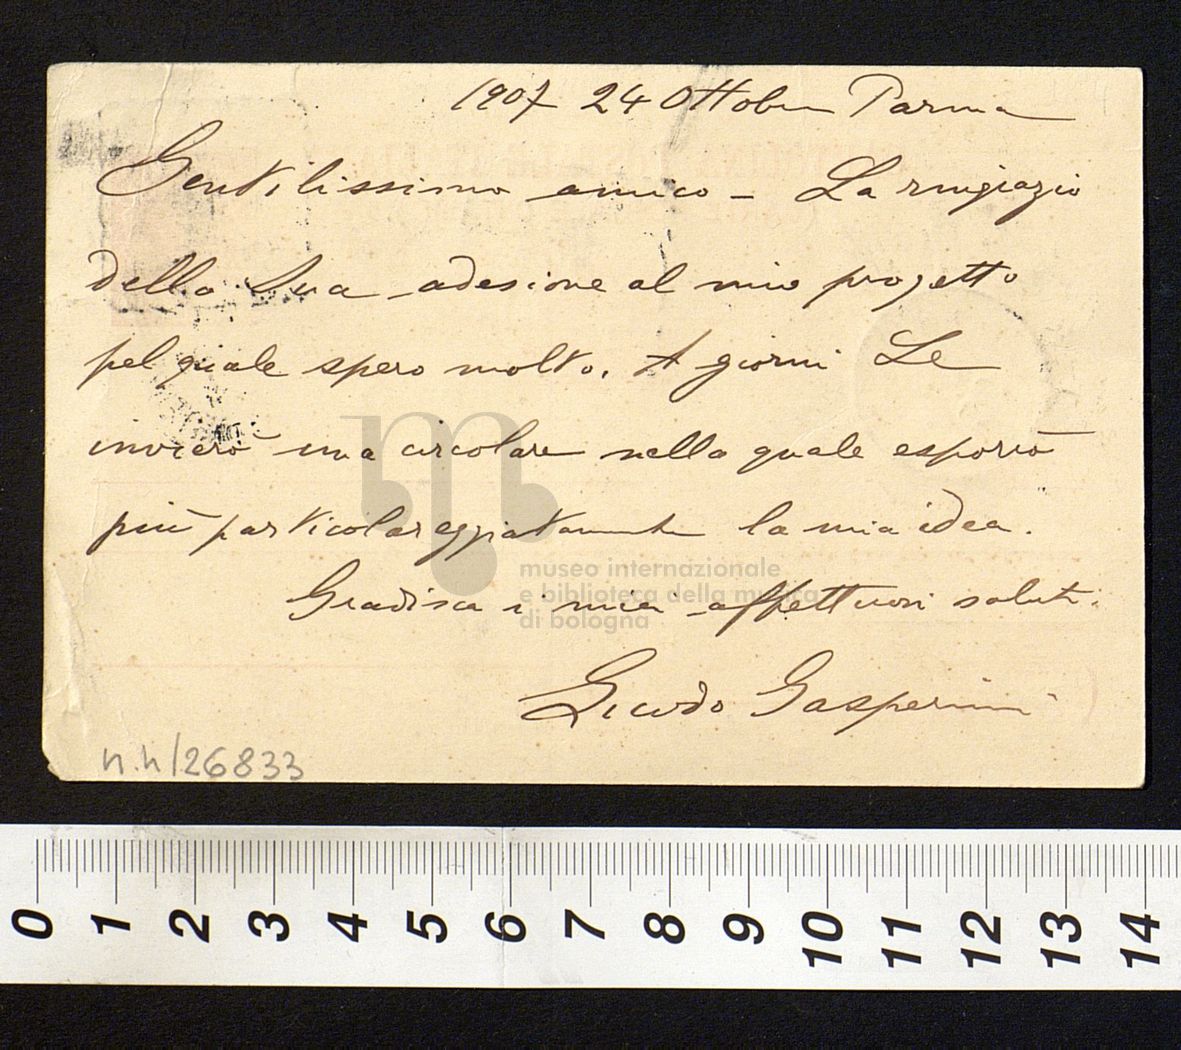 1907 24 Ottobre Parma
Gentilissimo amico – La ringrazio
della Sua adesione al mio progetto
pel quale spero molto. A giorni Le
invierò una circolare nella quale esporrò
più particolareggiatamente la mia idea.
Gradisca i miei affettuosi saluti.
Guido Gasperini
museo internazionale
e biblioteca della musica
di bologna
n.n/26833
0 1 2 3 4 5 6 7 8 9 10 11 12 13 14